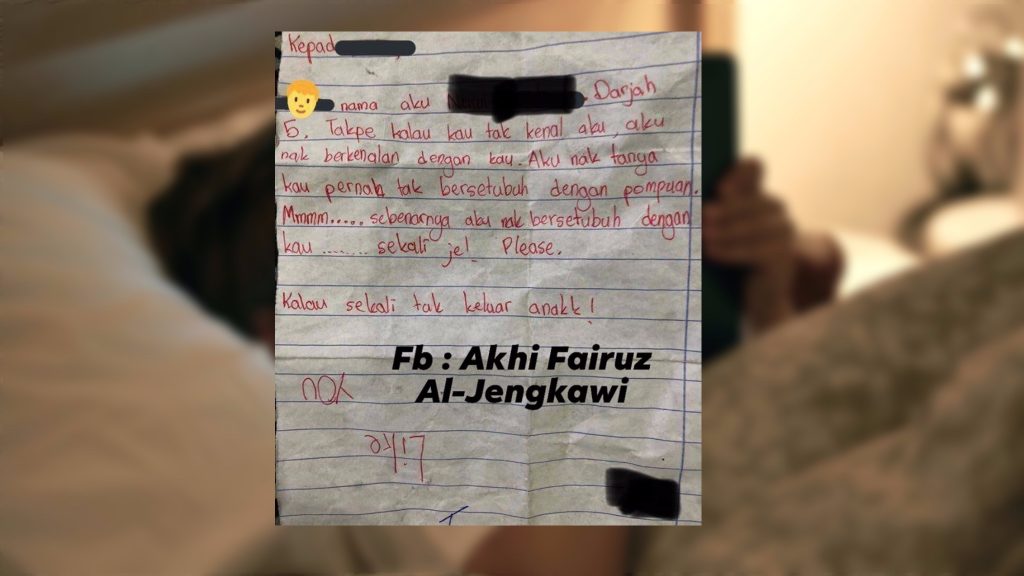 Kepad
nama aku Darjah
5. Takpe kalau kau tak kenal aku, aku
nak berkenalan dengan kau. Aku nak tanya
kau pernah tak bersetubuh dengan pompuan.
Mmmm..... sebenarnya aku nak bersetubuh dengan
kau ........ sekali je! Please.
Kalau sekali tak keluar anakk!
Fb : Akhi Fairuz
Al-Jengkawi